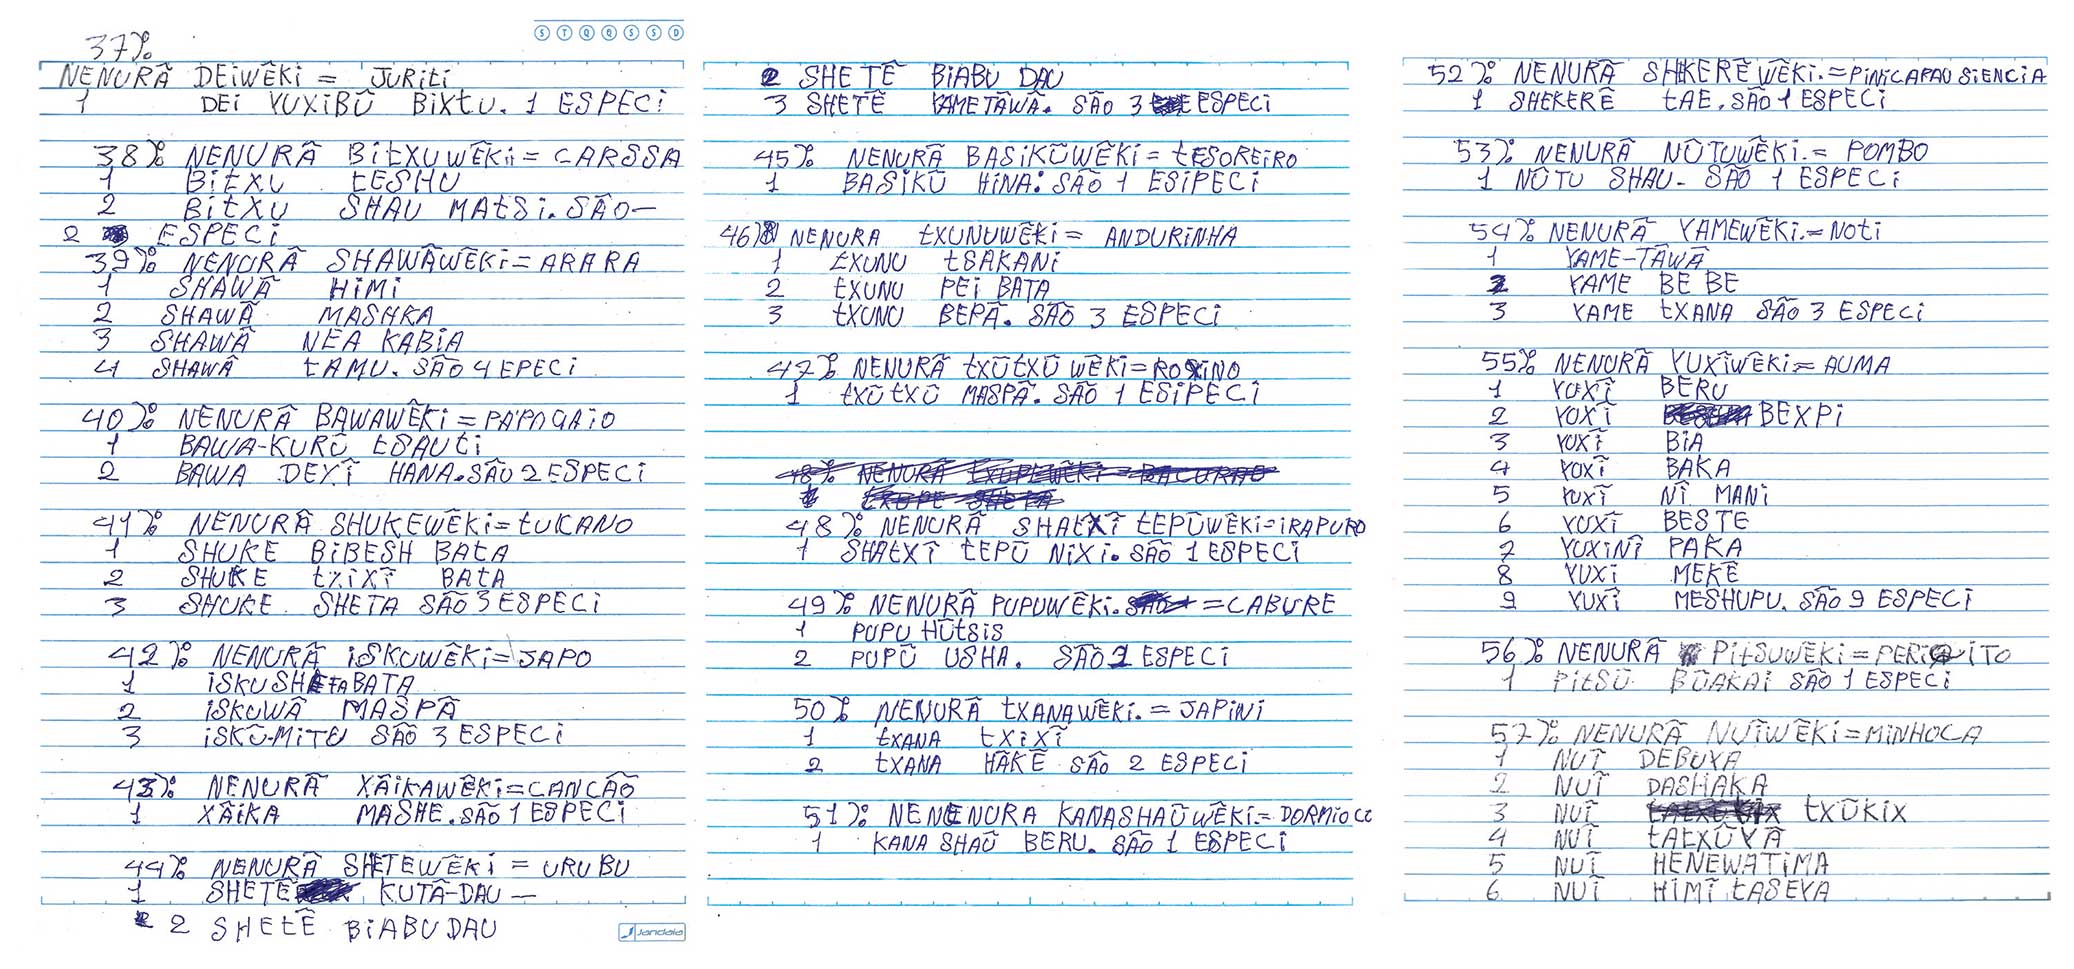 S T Q Q S S D
37%
NENURÃ DEIWẼKI = JURITI
1 DEI YUXIBŨ BIXTU. 1 ESPECI
38% NENURÃ BITXUWẼKI = CARSSA
1 BITXU TESHU
2 BITXU SHAU MATSI. SÃO-
2 ESPECI
39% NENURÃ SHAWÃWẼKI = ARARA
1 SHAWÃ HIMI
2 SHAWÃ MASHKA
3 SHAWÃ NEA KABIA
4 SHAWÃ TAMU. SÃO 4 EPECI
40% NENURÃ BAWAWẼKI = PAPAGAIO
1 BAWA-KURŨ TSAUTI
2 BAWA DEXĨ HANA. SÃO 2 ESPECI
41% NENURÃ SHUKEWẼKI = TUKANO
1 SHUKE BIBESH BATA
2 SHUKE TXIXĨ BATA
3 SHUKE SHETA SÃO 3 ESPECI
42% NENURÃ ISKUWẼKI = JAPO
1 ISKU SHETA BATA
2 ISKUWÃ MASPÃ
3 ISKŨ-MITU SÃO 3 ESPECI
43% NENURÃ XÃIKAWẼKI = CANCÃO
1 XÃIKA MASHE. SÃO 1 ESPECI
44% NENURÃ SHETEWẼKI = URUBU
1 SHETẼ KUTÃ-DAU -
2 2 SHETẼ BIABU DAU
Jandaia
2 SHETẼ BIABU DAU
3 SHETẼ YAMETÃWÃ. SÃO 3 ESPECI
45% NENURÃ BASIKŨWẼKI = TESOREIRO
1 BASIKŨ HINA: SÃO 1 ESIPECI
46% NENURA TXUNUWẼKI = ANDURINHA
1 TXUNU TSAKANI
2 TXUNU PEI BATA
3 TXUNU BEPÃ. SÃO 3 ESPECI
47% NENURÃ TXŨTXŨ WẼKI = ROXINO
1 TXŨTXŨ MASPÃ. SÃO 1 ESIPECI
48% NENURÃ TXUPEWẼKI = BACURAO
1 TXUPE SHETA
48% NENURÃ SHATXĨ TEPŨWẼKI = IRAPURO
1 SHATXĨ TEPŨ NIXI. SÃO 1 ESPECI
49% NENURÃ PUPUWẼKI. = CABURE
1 PUPU HŨTSIS
2 PUPŨ USHA. SÃO 2 ESPECI
50% NENURÃ TXANAWẼKI. = JAPINI
1 TXANA TXIXĨ
2 TXANA HÃKẼ SÃO 2 ESPECI
51% NENENURA KANASHAŨWẼKI = DORMIOCC
1 KANA SHAŨ BERU. SÃO 1 ESPECI
52% NENURÃ SHKERẼ WẼKI. = PINICAPAU SIENCIA
1 SHEKERẼ TAE. SÃO 1 ESPECI
53% NENURÃ NŨTUWẼKI. = POMBO
1 NŨTU SHAU- SÃO 1 ESPECI
54% NENURÃ YAMEWẼKI. = NOTI
1 YAME-TÃWÃ
2 YAME BE BE
3 YAME TXANA SÃO 3 ESPECI
55% NENURÃ YUXĨWẼKI = AUMA
1 YUXĨ BERU
2 YUXĨ BEXPI
3 YUXĨ BIA
4 YUXĨ BAKA
5 YUXĨ NĨ MANI
6 YUXĨ BESTE
7 YUXINĨ PAKA
8 YUXĨ MEKẼ
9 YUXĨ MESHUPU. SÃO 9 ESPECI
56% NENURÃ PITSUWẼKI = PERIQITO
1 PITSŨ BŨAKAI SÃO 1 ESPECI
57% NENURÃ NUĨWẼKI = MINHOCA
1 NUĨ DEBUXA
2 NUĨ DASHAKA
3 NUĨ TXŨKIX
4 NUĨ TATXŨYÃ
5 NUĨ HENEWATIMA
6 NUĨ HIMĨ TASEYA